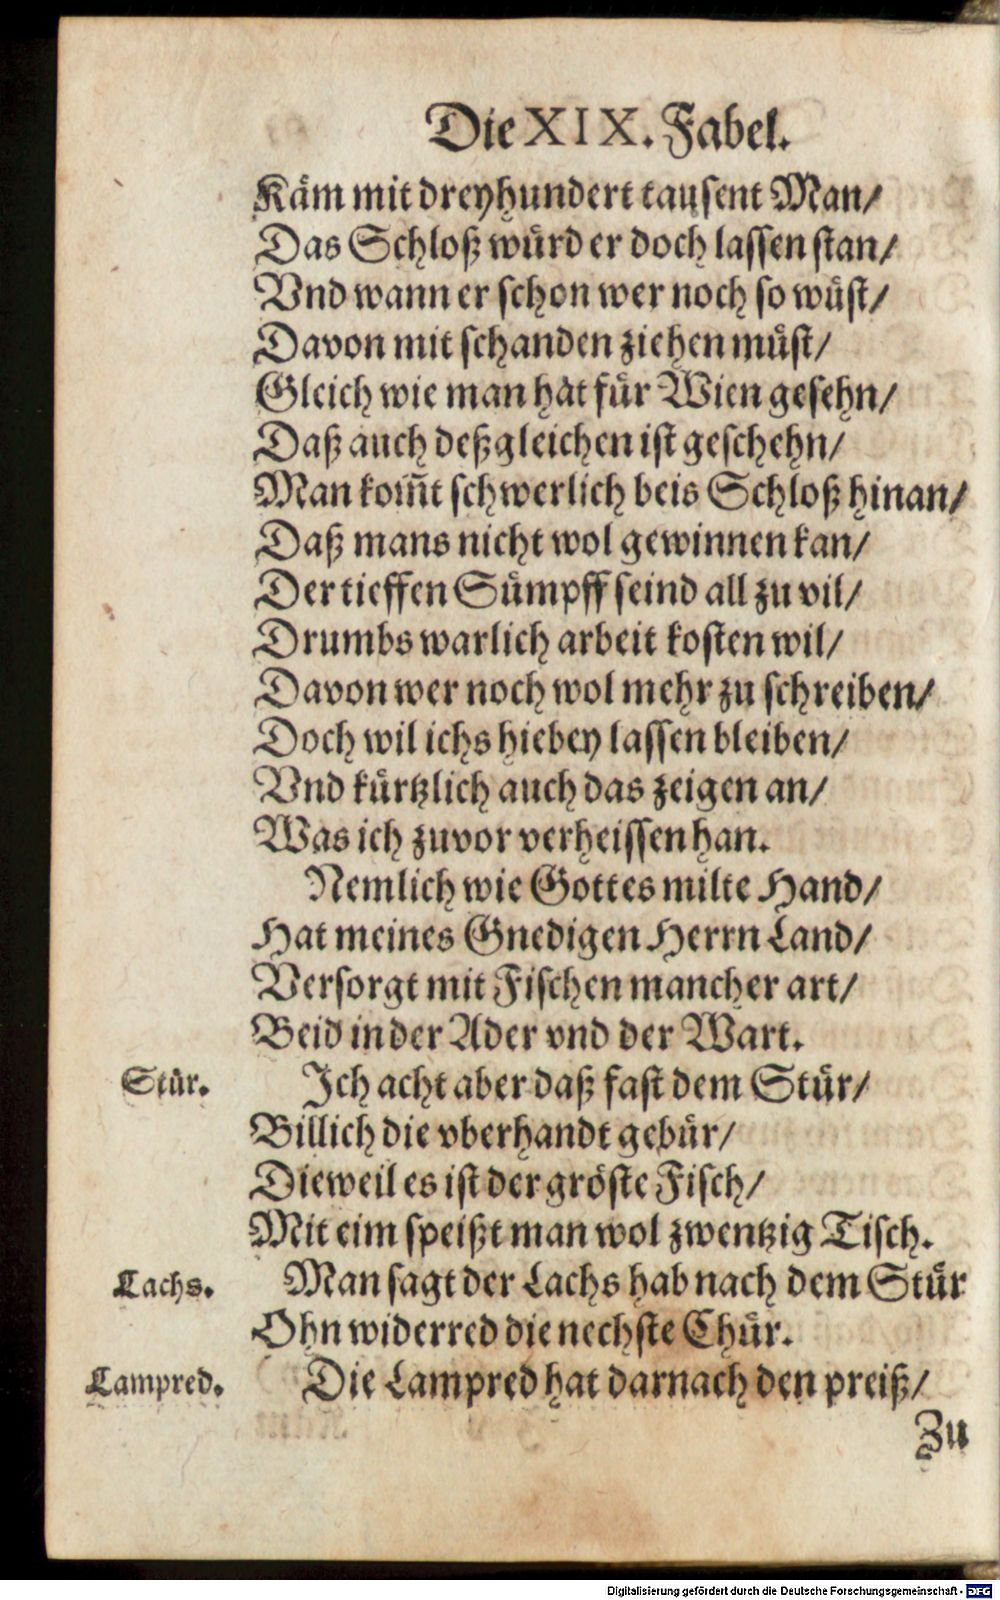 Die XIX. Fabel.
Kåm mit dreyhundert tausent Man/
Das Schloß wůrd er doch lassen stan/
Vnd wann er schon wer noch so wůst/
Davon mit schanden ziehen můst/
Gleich wie man hat fůr Wien gesehn/
Daß auch deßgleichen ist geschehn/
Man kom̃t schwerlich beis Schloß hinan/
Daß mans nicht wol gewinnen kan/
Der tieffen Sůmpff seind all zu vil/
Drumbs warlich arbeit kosten wil/
Davon wer noch wol mehr zu schreiben/
Doch wil ichs hiebey lassen bleiben/
Vnd kůrtzlich auch das zeigen an/
Was ich zuvor verheissen han.
Nemlich wie Gottes milte Hand/
Hat meines Gnedigen Herrn Land/
Versorgt mit Fischen mancher art/
Beid in der Ader vnd der Wart.
Stůr. Ich acht aber daß fast dem Stůr/
Billich die vberhandt gebůr/
Dieweil es ist der gröste Fisch/
Mit eim speißt man wol zwentzig Tisch.
Lachs. Man sagt der Lachs hab nach dem Stůr
Ohn widerred die nechste Chůr.
Lampred. Die Lampred hat darnach den preiß/
Zu
Digitalisierung gefördert durch die Deutsche Forschungsgemeinschaft - DFG